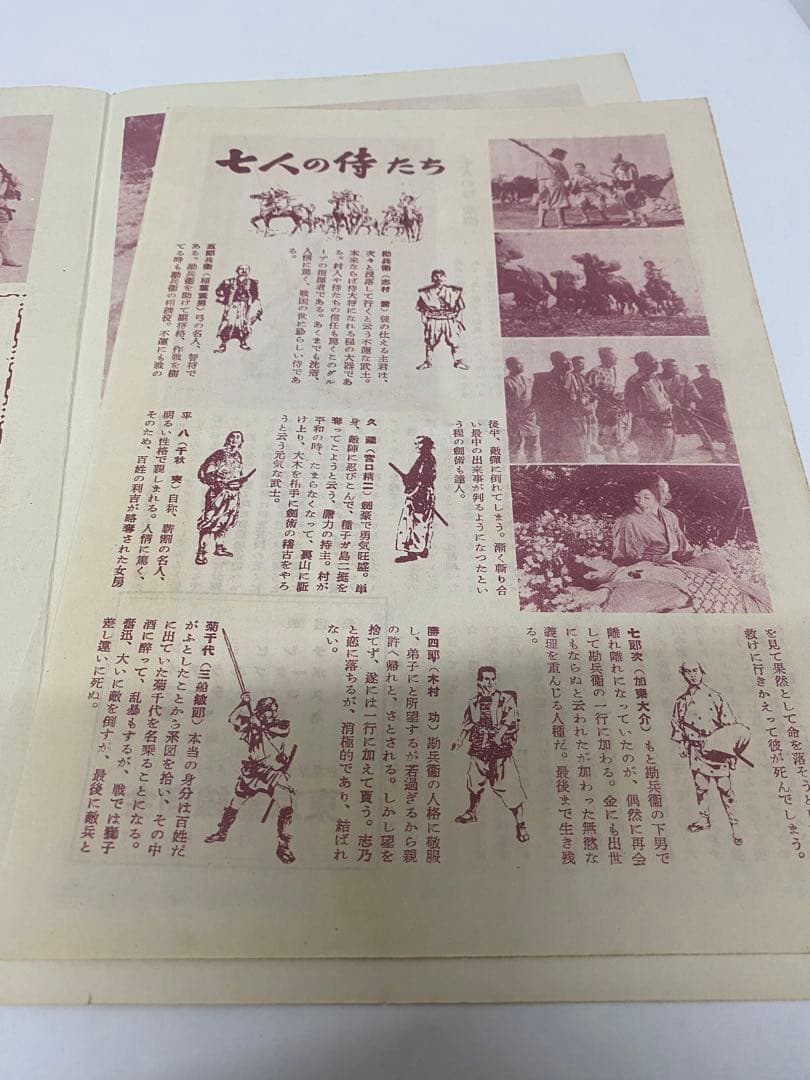 七人の侍たち
勘兵衛（志村　喬）彼の仕える主君は、
次々と没落して行くと云う不運な武士。
本来ならば侍大将になれる程の大器であ
る。村人や侍たちの信任も篤くこのグル
ープの指揮者である。あくまでも沈着、
人情に篤く、戦国の世に珍らしい侍であ
る。
五郎兵衛（稲葉義男）弓の名人、智将で
ある。勘兵衛を助けて副将格、作戦を樹
てる時も勘兵衛の相談役。不運にも戦の
後半、敵弾に倒れてしまう。漸く斬り合
い最中の出来事が判るようになつたとい
う程の劍術も達人。
久　蔵（宮口精二）劍豪で勇気旺盛。単
身、敵陣に忍びこんで、種子ガ島二挺を
奪ってこようと云う、膽力の持主。村が
平和の時、たまらなくなって、裏山に駈
け上り、大木を相手に劍術の稽古をやろ
うと云う元気な武士。
平　八（千秋　実）自称、薪割の名人、
明るい性格で親しまれる。人情に篤く、
そのため、百姓の利吉が略奪された女房
を見て果然として命を落そうと
救けに行きかえって彼が死んでしまう。
七郎次（加東大介）もと勘兵衛の下男で
離れ離れになっていたのが、偶然に再会
して勘兵衛の一行に加わる。金にも出世
にもならぬと云われたが加わった無慾な
義理を重んじる人種だ。最後まで生き残
る。
勝四郎（木村　功）勘兵衛の人格に敬服
し、弟子にと所望するが若過ぎるから親
の許へ帰れと、さとされる。しかし望を
捨てず、遂には一行に加えて貰う。志乃
と恋に落ちるが、消極的であり、結ばれ
ない。
菊千代（三船敏郎）本当の身分は百姓だ
がふとしたことから系図を拾い、その中
に出ていた菊千代を名乗ることになる。
酒に醉って、乱暴もするが、戦では獅子
奮迅、大いに敵を倒すが、最後に敵兵と
差し違いに死ぬ。